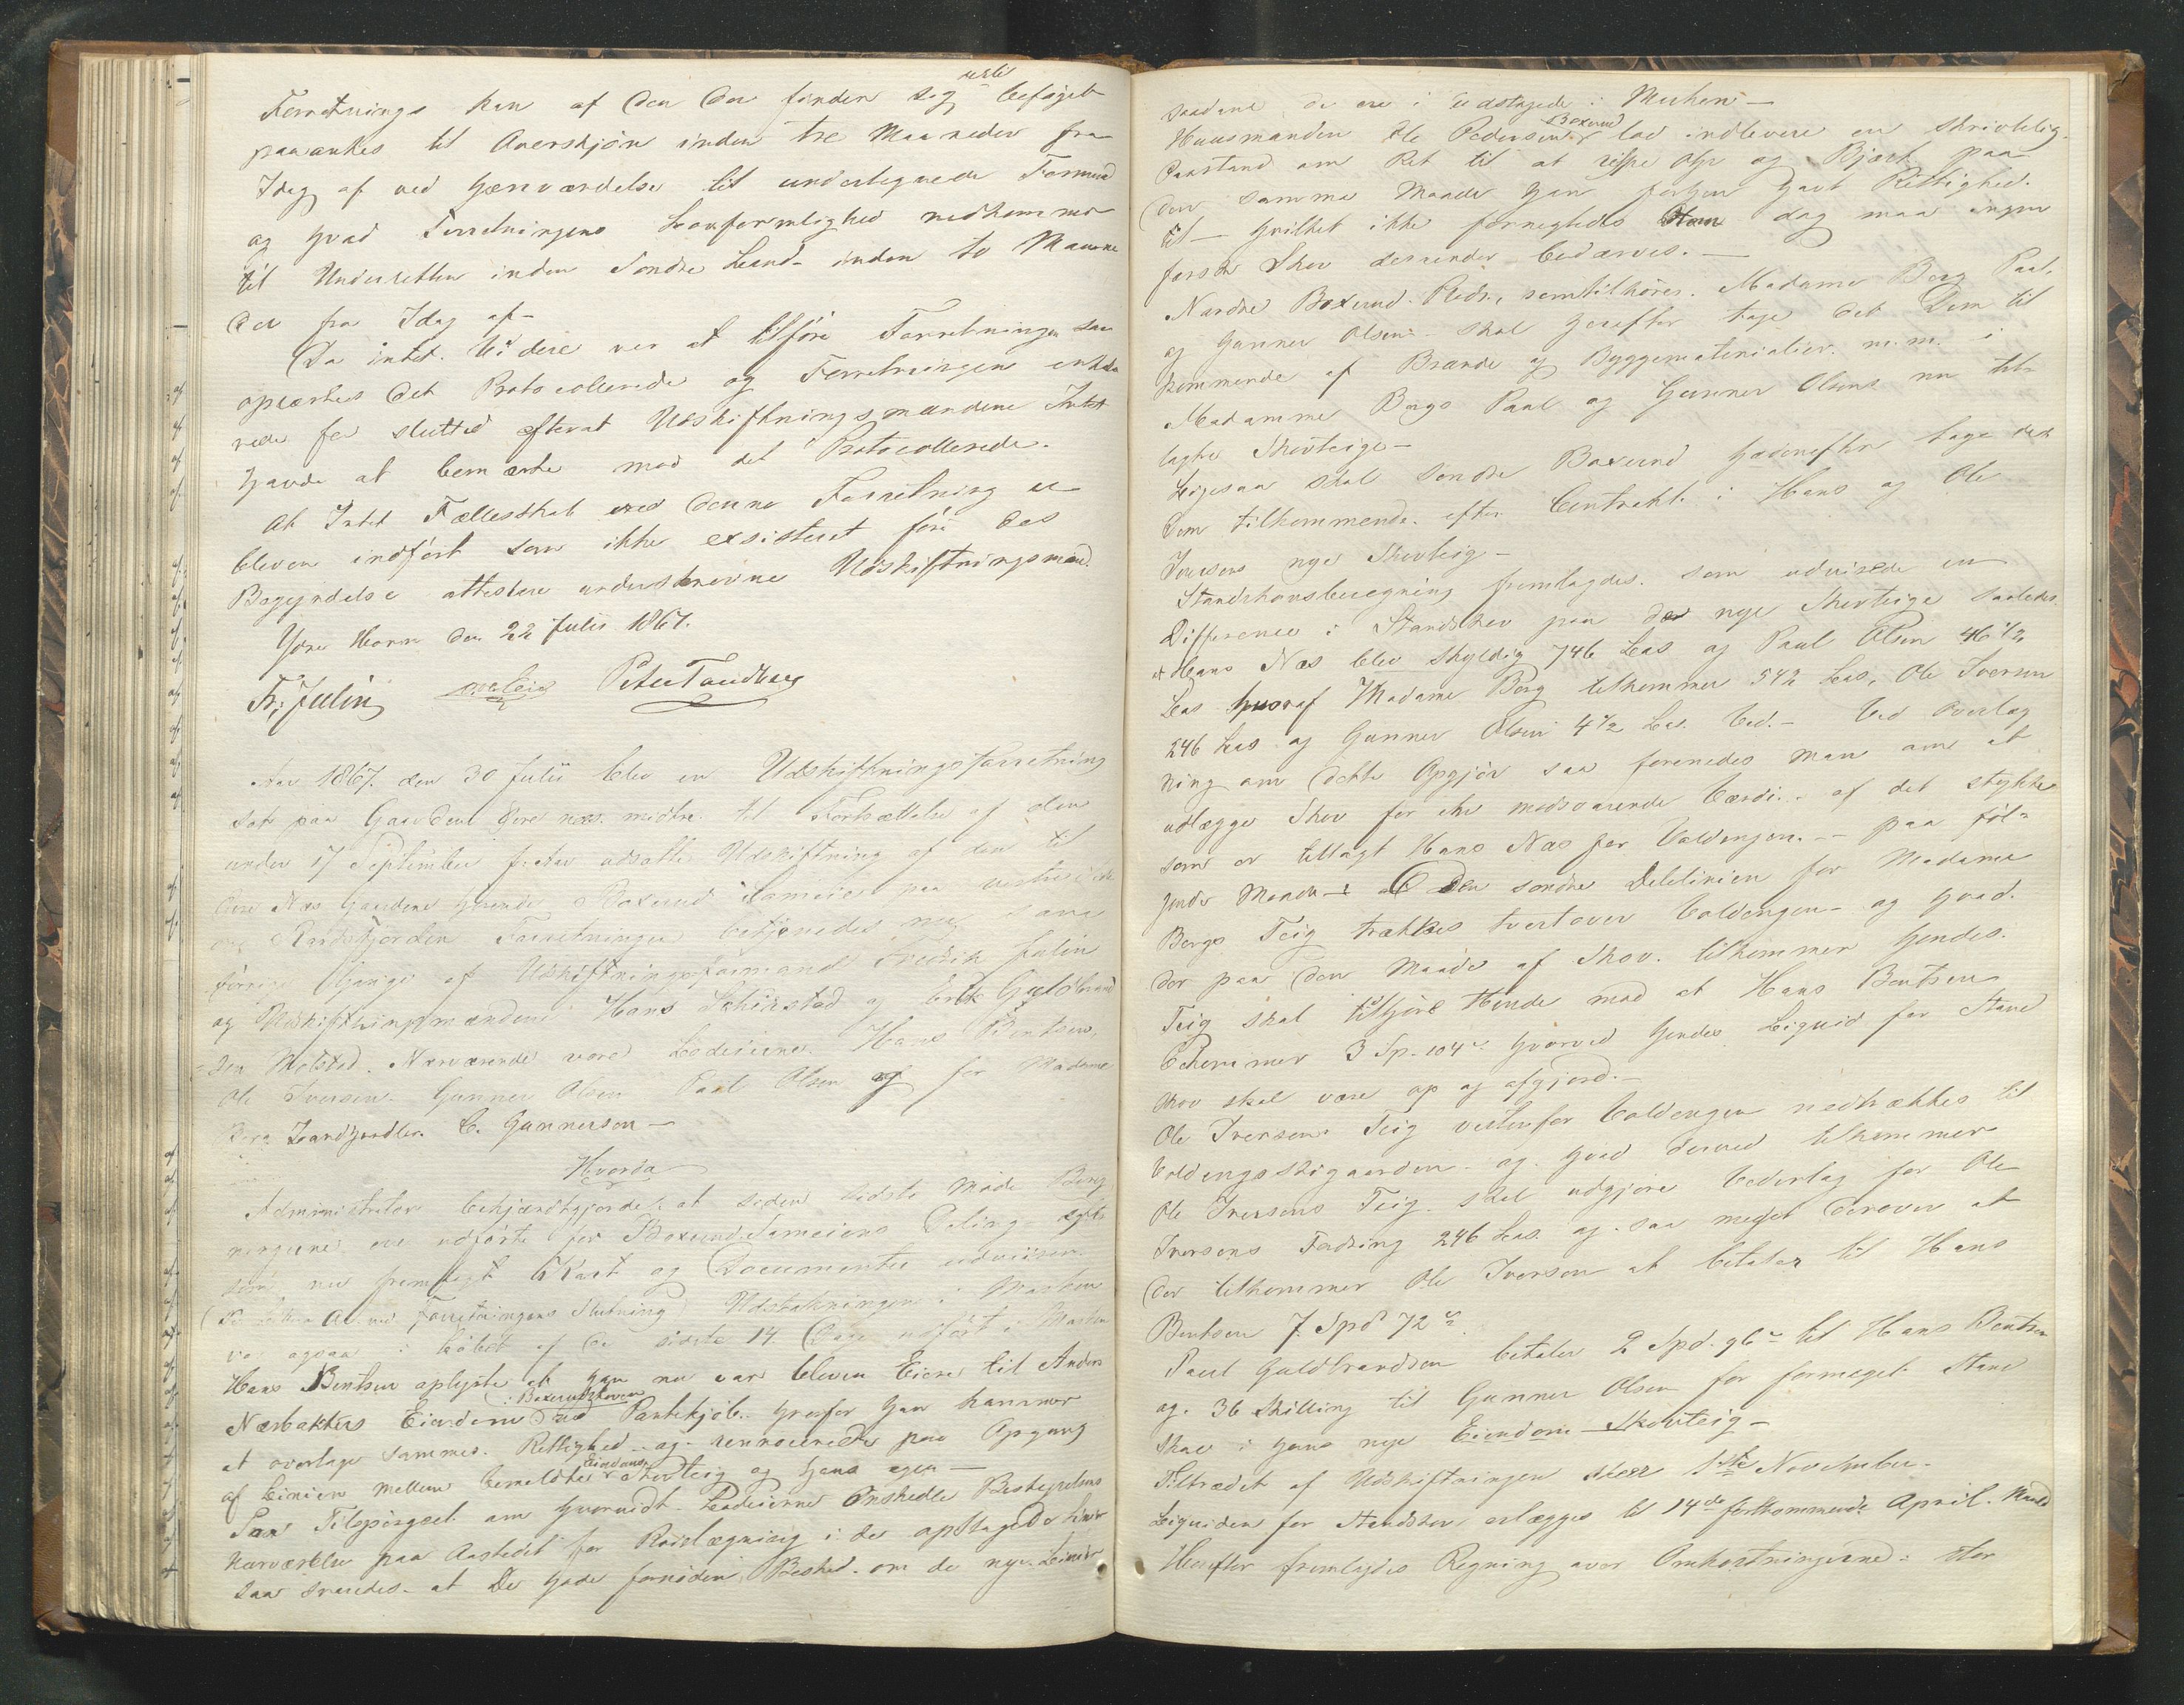 Forretnings kan af den der finder sig dertil beføiet
paaankes til Overskjøn inden tre Maaneder fra
Idag af ved Henvendelse til undertegnede Formand
og hvad Forretningens Lovformlighed vedkommer
til Underretten inden Søndre Land inden to Maane
der fra Idag af-
Da intet Videre var at tilføre Forretningen saa
oplæstes det Protocollerede og Forretningen erklæ
redes for sluttet efterat Udskiftningsmændene Intet
havde at bemærke mod det Protocollerede.
At Intet Fællesskab ved denne Forretning er
bleven indført som ikke exsisteret før des
Begyndelse attestere underskrevne Udskiftningsmænd
Ydre Horn den 22 Julii 1867.
Fr. Julin Peter Tandberg
Aar 1867 den 30 Julii blev en Udskiftningsforretning
sat paa Gaarden Øvre næs midtre til Fortsættelse af den
under 17 September f. Aar udsatte Udskiftning af den til
Øvre Næs Gaardene hørende Boxerud Sameie paa vestre Side
om Randsfjorden Forretningen betjenedes nu som
forrige Gange af Udskiftningsformand Fredrik Julin
og Udskiftningsmændene Hans Schiestad og Erik Guldbrand
sen Molstad. Nærværende vare Lodeierne Hans Bentsen,
Ole Iversen Gunner Olsen Paul Olsen og for Madame
Berg Landhandler C. Gunnerson -
Hvorda
Administrator bekjendtgjorde: at siden sidste Møde Bereg
ningerne ere udførte for Boxerud Sameiets Deling
som nu fremlagt Kart og Documenter udviser
ved Forretningens Slutning Udstakningen i Marken
var ogsaa i Løbet af de sidste 14 Dage udført i Marken
Hans Bentsen oplyste at han nu var bleven Eier til Anders
Næsbakkens Eiendom : Boxerudskoven ved Pantekjøb hvorfor han kommer
at overtage sammes Rettighed og renoncerede paa Opgang
af Linien mellem bemeldte Eiendoms Skovteig og hans egen -
Paa Tilspørgsel om hvorvidt Lodeierne Ønskede Bestyrelsens
Nærværelse paa Aastedet for Paavisning i de opstagede Linier
saa svaredes at De havde fornøden Besked om de nye Linier
saadane de ere i udstagede i Marken -
Huusmanden Ole Pedersen Boxerud lod indlevere en skrivtelig
Paastand om Ret til at rispe Løv og Bjørk paa
den samme Maade han forhen havt Rettighed
til - hvilket ikke fornegtedes Ham dog maa ingen
forsør Skov derunder bedærves. -
Nordre Boxerud Plads, somtilhører Madame Berg Paul
og Gunner Olsen skal herefter tage det Dem til
kommende af Brænde og Byggematerialier m. m. i
Madamme Bergs Paul og Gunner Olsens nu til
lagte Skovteige -
Ligesaa skal Søndre Boxerud hædenefter tage det
Dem tilkommende efter Contrakt i Hans og Ole
Iversens nye Skovteig -
Standskovsberegning fremlagdes som udviste en
Difference i Standskov paa de nye Skovteige saaledes
at Hans Næs blev skyldig 746 Læs og Paul Olsen 46 1/2
Læs hvoraf Madame Berg tilkommer 542 Læs, Ole Iversen
246 Læs og Gunner Olsen 4 1/2 Læs Ved. - Ved Overlæg
ning om dette Opgjør saa forenedes man om at
udlægge Skov for en modsvarende Værdi af det stykke
som er tillagt Hans Næs for Voldengen - paa føl-
gende Maade - Den søndre Delelinien for Madame
Bergs Teig trækkes tvertover Voldengen og hvad
der paa den Maade af Skov tilkommer hendes
Teig skal tilhøre Hende mod at Hans Bentsen
bekommer 3 Sp. 104 s hvorved hendes Liquid for Stand
skov skal være op og afgjord. -
Ole Iversens Teig vestenfor Voldengen nedtrækkes til
Voldengsskigaarden og hvad derved tilkommer
Ole Iversens Teig skal udgjøre Vederlag for Ole
Iversens Fordring 246 Læs og saa meget derover at
der tilkommer Ole Iversen at betaler til Hans
Bentsen 7 Spd 72 s
Paul Guldbrandsen betaler 2 Spd. 96 s til Hans Bentsen
og 36 Skilling til Gunner Olsen for formeget Stand
skov i hans nye Eiendom Skovteig -
Tiltrædet af Udskiftningen skeer 1ste November.
Liquiden for Standskov erlægges til 14de førstkommende April
Herefter fremlagdes Regning over Omkostningerne: stor